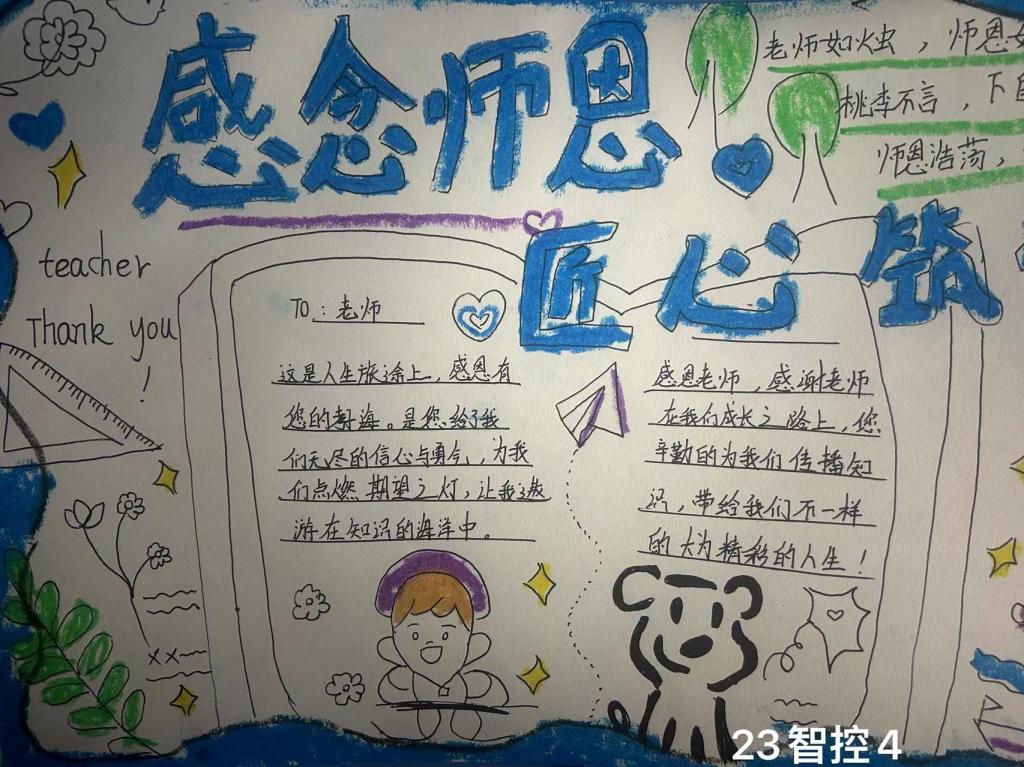 感念师恩
老师如火虫，师恩
桃李不言，下自
师恩浩荡，
匠心筑
teacher
Thank you
!
TO：老师
这是人生旅途上，感恩有
您的教海。是您给了我
们无尽的信心与勇气，为我
们点燃期望之灯，让我遨
游在知识的海洋中。
感恩老师，感谢老师
在我们成长之路上，您
辛勤的为我们传播知
识，带给我们不一样
的大为精彩的人生！
××
23智控4